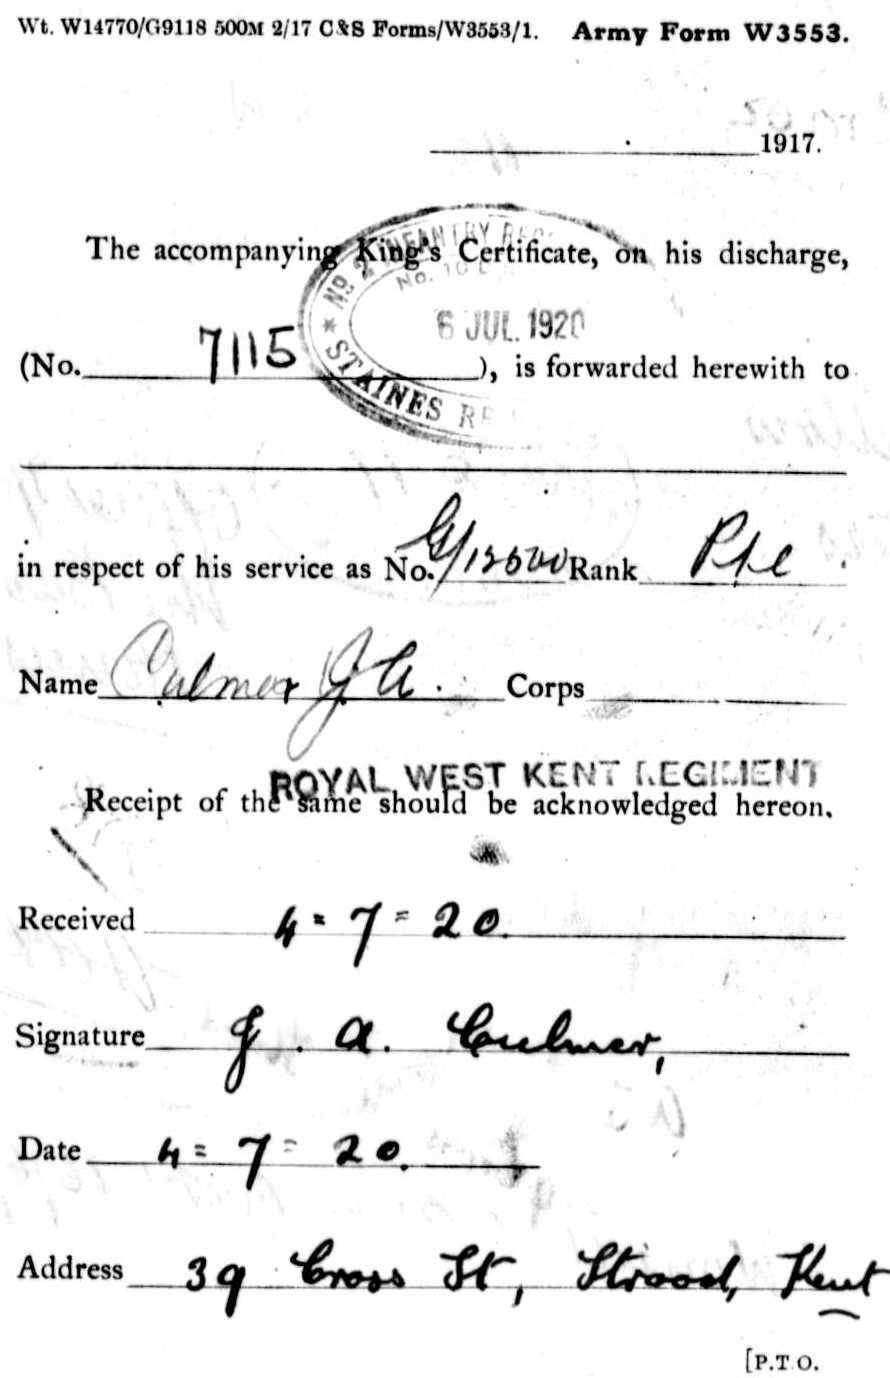 Wt. W14770/G9118 500M 2/17 C&S Forms/W3553/1. Army Form W3553.
1917.
The accompanying King's Certificate, on his discharge,
No 2 INFANTRY REC
No. 10
6 JUL. 1920
STAINES RE
(No. 7115 ), is forwarded herewith to
in respect of his service as No. G/12600 Rank Pte
Name Culmer J A. Corps
ROYAL WEST KENT REGIMENT
Receipt of the same should be acknowledged hereon.
Received 4=7=20.
Signature J. A. Culmer,
Date 4=7=20.
Address 39 Cross St, Strood, Kent
[P.T.O.